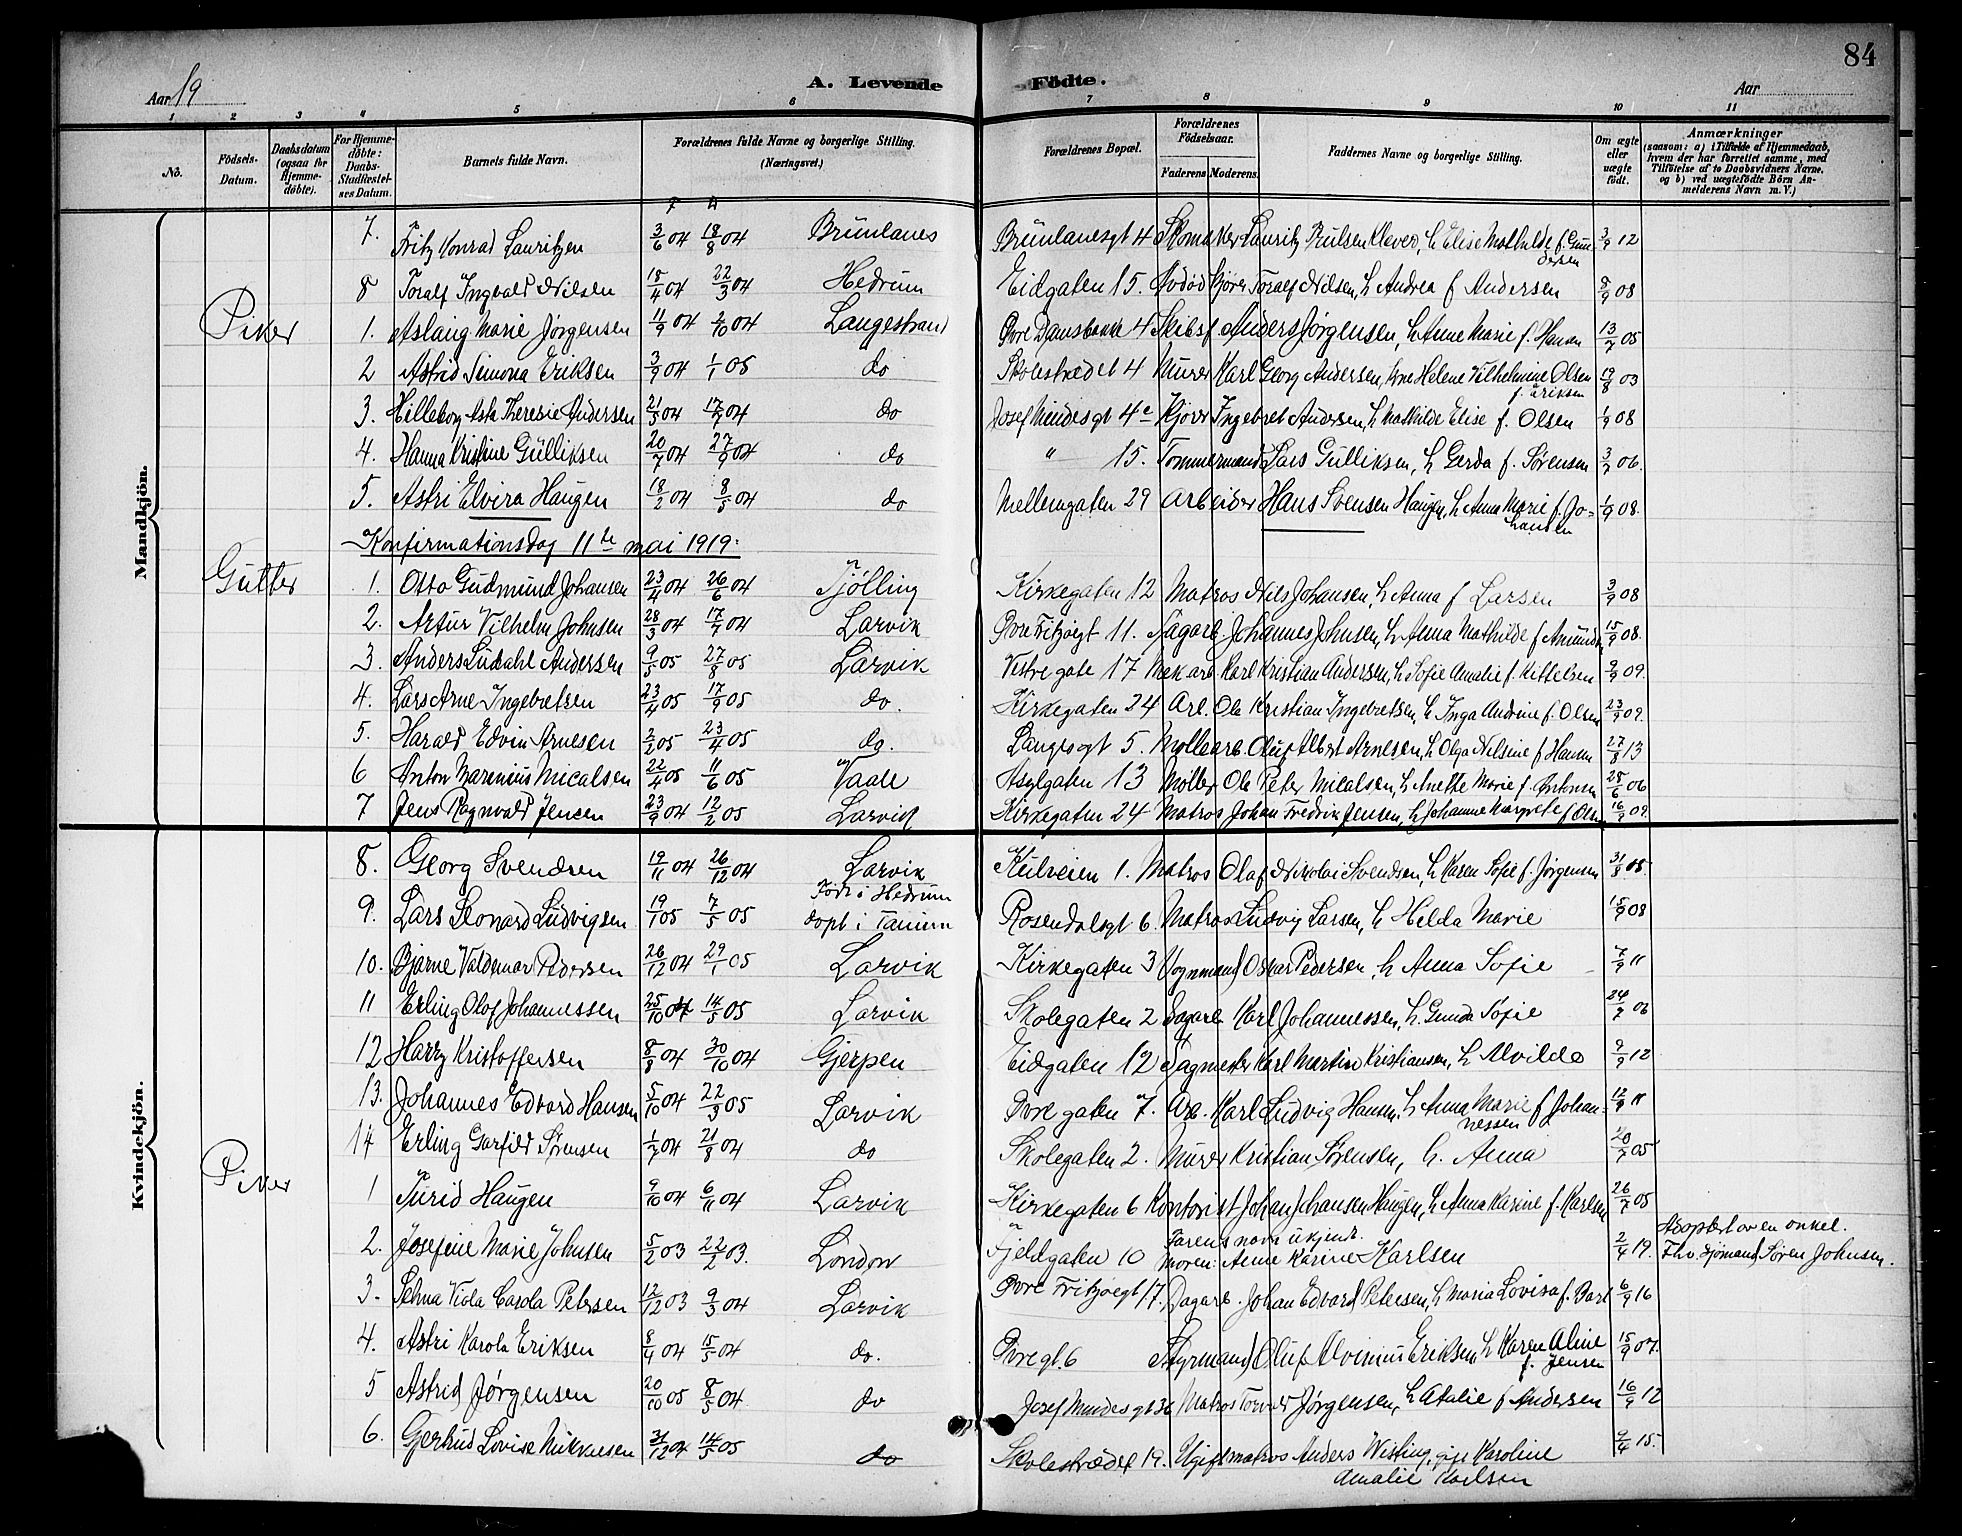 84
Aar 19
A. Levende Födte.
Aar
1 2 3 4 5 6 7 8 9 10 11
No.
Födsels-Datum.
Daabsdatum (ogsaa for Hjemme-döbte).
For Hjemme-döbte: Daabs-Stadfæstel-ses Datum.
Barnets fulde Navn.
Forældrenes fulde Navne og borgerlige Stilling. (Næringsvei.)
Forældrenes Bopæl.
Forældrenes Födselsaar.
Faderens. Moderens.
Faddernes Navne og borgerlige Stilling.
Om ægte eller uægte födt.
Anmærkninger
(saasom: a) i Tilfælde af Hjemmedaab, hvem der har forrettet samme, med Tilföielse af to Daabsvidners Navne, og b) ved uægtefödte Börn An-melderens Navn m. V.)
Mandkjön.
Kvindekjön.
7. Fritz Konrad Lauritzen 3/6 04 18/8 04 Brunlanes Brunlanesgt 4 Skomaker Lauritz Paulsen Klever, h Elise Mathilde f. Gun-dersen 3/9 12
8 Toralf Ingvald Nilsen 18/4 04 22/3 04 Hedrum Eidgaten 15. Avdød kjører Toralf Nilsen, h Andrea f Andersen 8/9 08
Piker
1. Aslaug Marie Jørgensen 11/9 04 2/10 04 Langestrand Øvre Damsbakk 4 Skibsf. Anders Jørgensen, h Anne Marie f. Hansen 13/7 05
2 Astrid Simona Eriksen 3/9 04 1/1 05 do Skolestrædet 4 Murer Karl Georg Andersen, Helene Vilhelmine Olsen f. Eriksen 19/8 03
3. Hilleborg Asta Theresie Andersen 21/5 04 17/7 04 do Josef Mindesgt 4 Kjører Ingebret Andersen, h Mathilde Elise f. Olsen 1/9 08
4. Hanna Kristine Gulliksen 20/7 04 27/9 04 do " 15. Tømmermand Lars Gulliksen, h Gerda f. Sørensen 3/7 06.
5. Astri Elvira Haugen 18/2 04 8/5 04 do Mellemgaten 29 Arbeider Hans Svensen Haugen, h Anna Marie f. Jo-hansen 1/9 08.
Konfirmationsdag 11te mai 1919:
Gutter
1. Otto Gudmund Johansen 23/4 04 26/6 04 Tjølling Kirkegaten 12 Matros Nils Johansen, h Anna f Larsen 3/9 08
2. Artur Vilhelm Johnsen 28/3 04 17/7 04 Larvik Øvre Fritzøegt 11. Sagarb Johannes Johnsen, h Anna Mathilde f Amunds 15/9 08.
3. Anders Lindahl Andersen 9/5 05 27/8 05 Larvik Vestregate 17 Mek arb. Karl Kristian Andersen, h Sofie Amalie f. Kittelsen 2/9 09.
4. Lars Arne Ingebretsen 23/4 05 17/9 05 do. Kirkegaten 24 Arb. Ole Kristian Ingebretsen, h Inga Andrine f. Olsen 23/9 09.
5. Harald Edvin Arnesen 2/2 05 23/4 05 do. Langesgt 5. Møllearb. Oluf Albert Arnesen, h Olga Nilsine f Hansen 27/8 13
6 Anton Marenius Micalsen 22/4 05 11/6 05 Vaale Asylgaten 13 Møller Ole Peter Micalsen, h Anette Marie f. Antonsen 28/6 06
7 Jens Ragnvald Jensen 23/9 04 12/2 05 Larvik Kirkegaten 24 Matros Johan Fredrik Jensen, h Johanne Margrete f Olsen 16/9 09.
8. Georg Svendsen 19/11 04 26/12 04 Larvik Kulveien 1. Matros Olaf Nikolai Svendsen, h Karen Sofie f. Jørgensen 31/8 08.
9. Lars Leonard Ludvigsen 19/1 05 7/5 05 Født i Hedrum døpt i Tanum Rosendalsgt 6 Matros Ludvig Larsen, h Helda Marie 15/9 08
10. Bjarne Valdemar Pedersen 26/12 04 29/1 05 Larvik Kirkegaten 3 Vognmand Oskar Pedersen, h Anna Sofie 7/9 11
11 Erling Olof Johannessen 25/10 04 14/5 05 Larvik Skolegaten 2 Sagarb Karl Johannessen, h. Gunda Sofie 24/7 06
12 Harry Kristoffersen 8/8 04 30/10 04 Gjerpen Eidgaten 12 Sagmester Karl Martin Kristiansen, h Alvilda 9/9 12
13. Johannes Edvard Hansen 5/10 04 22/3 05 Larvik Øvre gaten 7. Arb. Karl Ludvig Hansen, h Anna Marie f Johan-nessen 12/9 11
14 Erling Garfild Sørensen 1/7 04 21/8 04 do Skolegaten 2. Murer Kristian Sørensen, h. Anna 20/7 05
Piker
1 Turid Haugen 9/10 04 6/11 04 Larvik Kirkegaten 6 Kontorist Johan Johansen Haugen, h Anna Karine f. Karlsen 26/7 05
2. Josefine Marie Johnsen 5/2 03 22/2 03. London Fjeldgaten 10 Farens navn ukjent. Moren: Anne Karine Karlsen 2/4 19. Adoptert av en onkel. Fhv. sjømand Søren Johnsen.
3. Selma Viola Carola Petersen 12/12 03 9/3 04 Larvik Øvre Fritzøegt 17. Dagarb. Johan Edvard Petersen, h Maria Lovisa f. Bart 6/9 16
4. Astri Karola Eriksen 8/4 04 15/5 04 do. Øvregt. 6 Styrmand Oluf Alvinius Eriksen, h Karen Aline f. Jensen 15/9 07.
5 Astrid Jørgensen 20/10 05 8/5 04 do Josef Mindesgt 36 Matros Torvar Jørgensen, h Atalie f Andersen 16/9 12
6. Gertrud Lovise 31/12 04 14/5 05 do Skolestrædet 19. Ugift matros Anders Wisting, pige Karoline Amalie Karlsen 9/4 15.